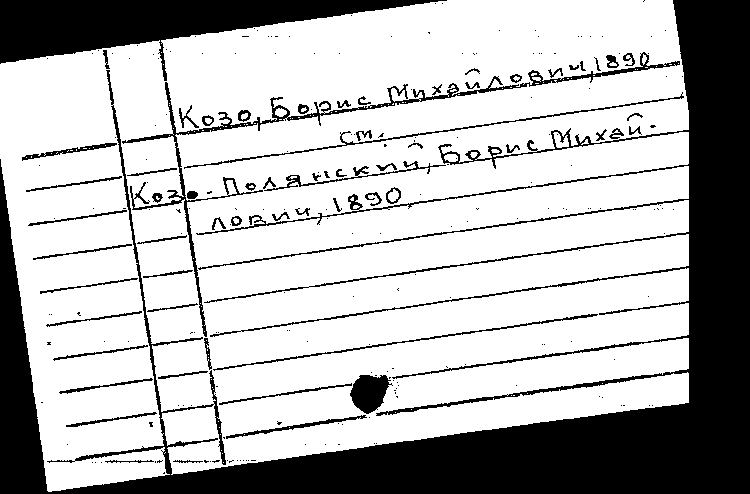 Козо, Борис Михайлович, 1890
ст.
Козо-Полянский, Борис Михай-
лович, 1890